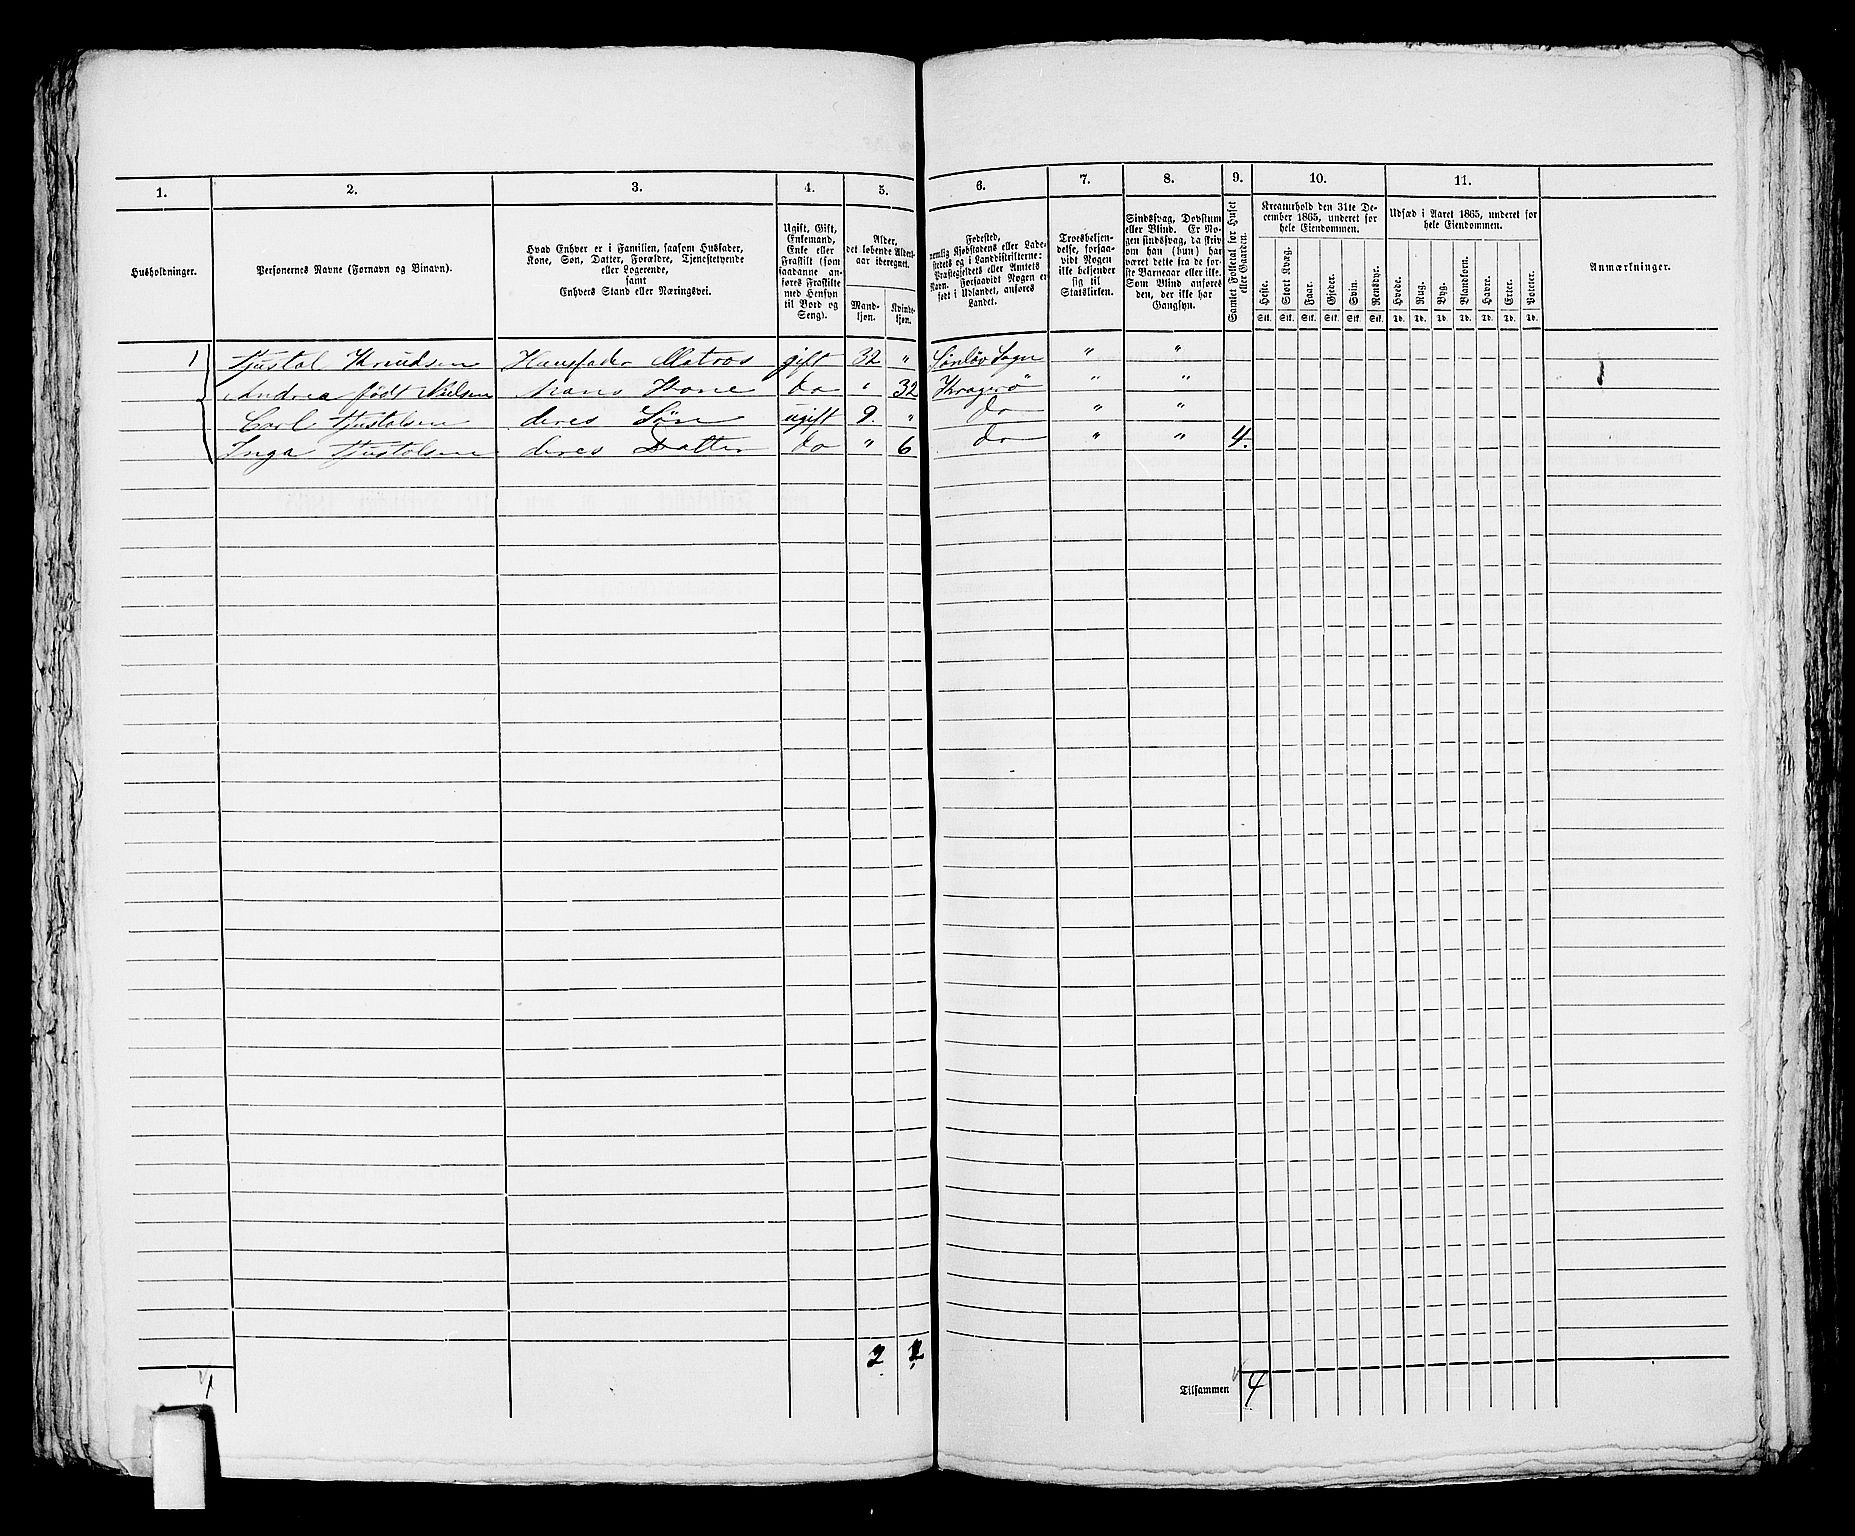 1. 2. 3. 4. 5. 6. 7. 8. 9. 10. 11.
Husholdninger.
Personernes Navne (Fornavn og Binavn).
Hvad Enhver er i Familien, saasom Husfader,
Kone, Søn, Datter, Forældre, Tjenestetyende
eller Logerende,
samt
Enhvers Stand eller Næringsvei.
Ugift, Gift,
Enkemand,
Enke eller
Fraskilt (som
saadanne an-
føres Fraskilte
med Hensyn
til Bord og
Seng).
Alder,
det løbende Alders-
aar iberegnet.
Mand-
kjøn.
Kvinde-
kjøn.
Fødested,
nemlig Kjøbstadens eller Lade-
stedets og i Landdistrikterne:
Præstegjeldets eller Amtets
Navn. Forsaavidt Nogen er
født i Udlandet, anføres
Landet.
Troesbekjen-
delse, forsaa-
vidt Nogen
ikke bekjender
sig til
Statskirken.
Sindssvag, Døvstum
eller Blind. Er No-
gen sindssvag, da skriv
om han (hun) har
været dette fra de for-
ste Barneaar eller ikke.
Som Blind anføres
den, der ikke har
Gangsyn.
Samlet Folketal for Huset
eller Gaarden.
Kreaturhold den 31te De-
cember 1865, underet for
hele Eiendommen.
Heste. Stort Kvæg. Faar. Gjeder. Svin. Rensdyr.
Stk. Stk. Stk. Stk. Stk. Stk.
Udsæd i Aaret 1865, underet for
hele Eiendommen.
Hvede. Rug. Byg. Blandkorn. Havre. Erter. Poteter.
Td. Td. Td. Td. Td. Td. Td.
Anmærkninger.
1 Knudsen Huusfader Matros gift 32 " Sogn " "
Andrea født Nielsen Mans Kone do " 32 Kragerø " "
Carl Tjustolsen deres Søn ugift 9. " do " "
Inga Tjustolsen deres Datter do " 6 do " " 4.
2 2
1
Tilsammen 4